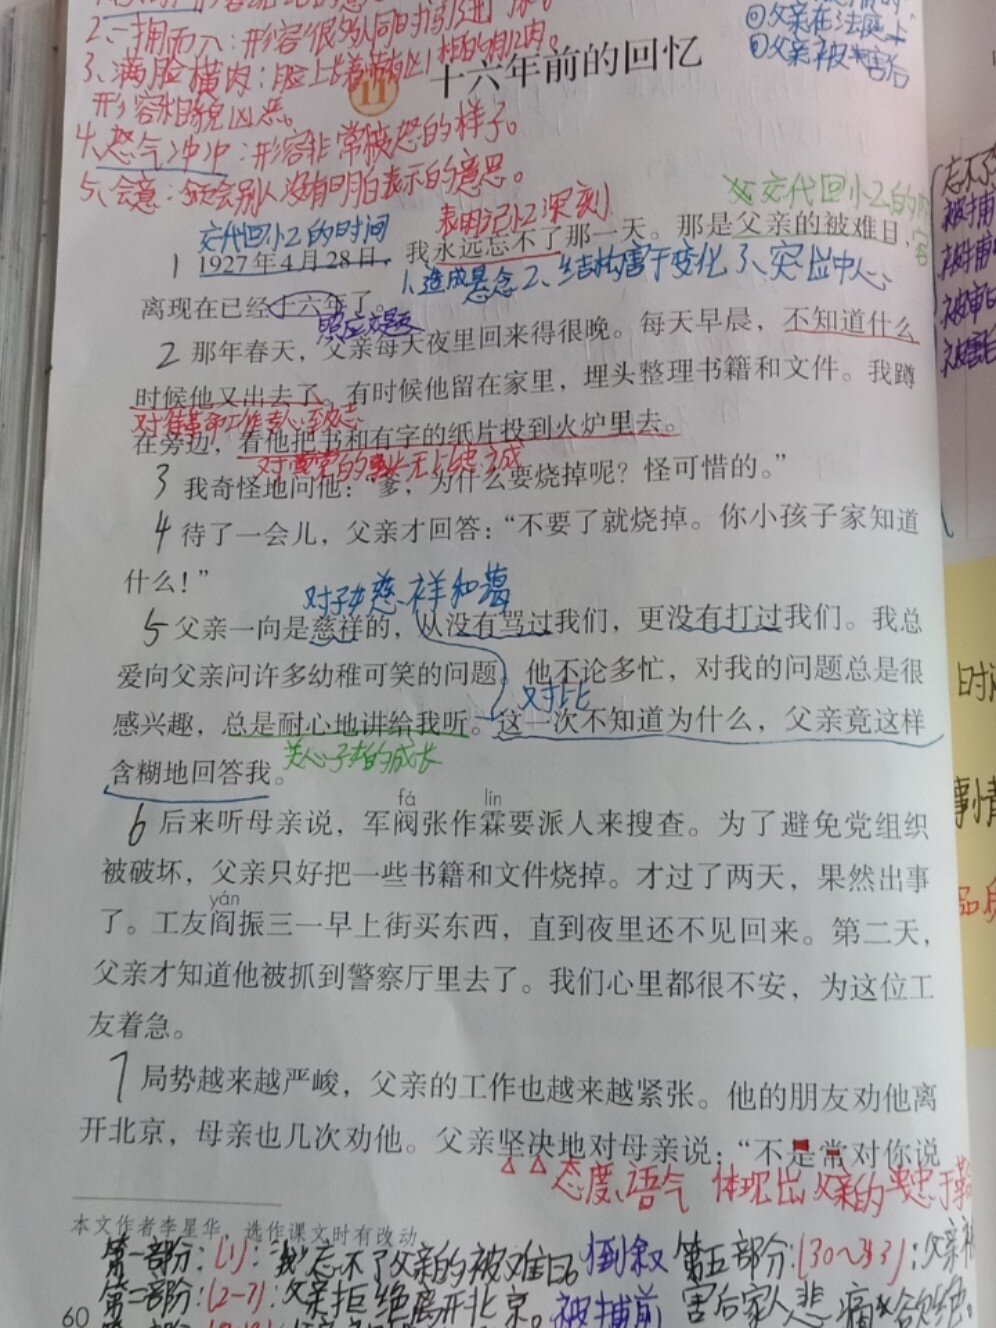 2、一拥而入：形容很多人同时
3、满脸横肉：脸上长着
形容相貌凶恶。
4、怒气冲冲：形容非常愤怒的样子。
5、会意：领会别人没有明白表示的意思。
⊙父亲在法庭上
⊙父亲被害后
11 十六年前的回忆
交代回忆的时间
表明记忆深刻
交代回忆的
1 1927年4月28日，我永远忘不了那一天。那是父亲的被难日，
1、造成悬念 2、结构富于变化 3、突出中心
离现在已经十六年了。
照应文题
2 那年春天，父亲每天夜里回来得很晚。每天早晨，不知道什么
时候他又出去了。有时候他留在家里，埋头整理书籍和文件。我蹲
对待革命工作专心致志
在旁边，看他把书和有字的纸片投到火炉里去。
3 我奇怪地问他：“爹，为什么要烧掉呢？怪可惜的。”
4 待了一会儿，父亲才回答：“不要了就烧掉。你小孩子家知道
什么！”
对子女慈祥和蔼
5 父亲一向是慈祥的，从没有骂过我们，更没有打过我们。我总
爱向父亲问许多幼稚可笑的问题。他不论多忙，对我的问题总是很
对比
感兴趣，总是耐心地讲给我听。这一次不知道为什么，父亲竟这样
关心子女的成长
含糊地回答我。
fá lín
6 后来听母亲说，军阀张作霖要派人来搜查。为了避免党组织
被破坏，父亲只好把一些书籍和文件烧掉。才过了两天，果然出事
yán
了。工友阎振三一早上街买东西，直到夜里还不见回来。第二天，
父亲才知道他被抓到警察厅里去了。我们心里都很不安，为这位工
友着急。
7 局势越来越严峻，父亲的工作也越来越紧张。他的朋友劝他离
开北京，母亲也几次劝他。父亲坚决地对母亲说：“不是常对你说
态度、语气 体现出父亲的忠于革
本文作者李星华，选作课文时有改动。
第一部分：(1)：我忘不了父亲的被难日。倒叙
第二部分：(2-7)：父亲拒绝离开北京。被捕前
第五部分：(30～33)：父亲被
害后家人悲痛欲绝。
60
忘不了
被捕
被捕
被审
被害
时
事情
品质